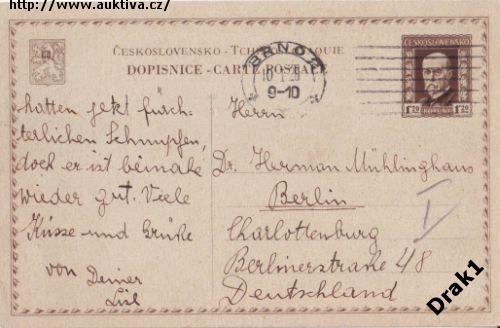 http://www.auktiva.cz/
ČESKOSLOVENSKO - TCHÉCOSLOVAQUIE
DOPISNICE - CARTE POSTALE
BRNO 2
10 I 2
9-10
ČESKOSLOVENSKO
1.20 1.20
hatten jetzt fürch-
terlichen Schnupfen,
doch er ist beinahe
wieder gut. Viele
Küsse und Grüße
von Deiner
Herrn
Dr. Herman Mühlinghaus
Berlin
Charlottenburg
Berlinerstraße 48
Deutschland
I
Drak1